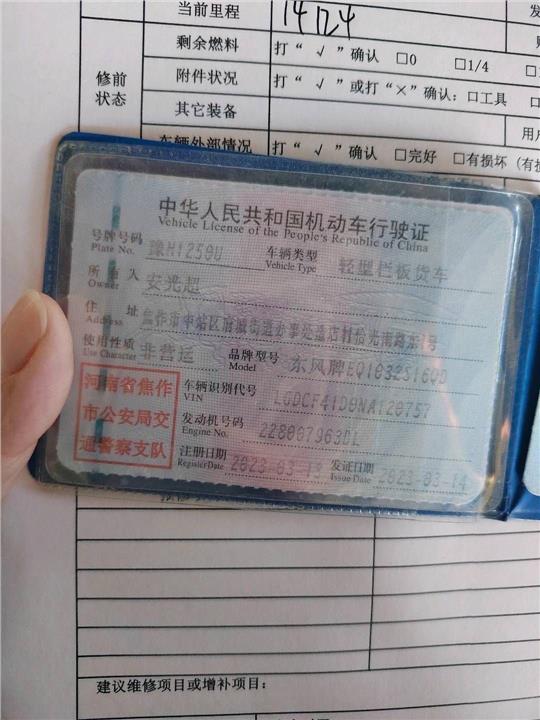 当前里程 14124
剩余燃料 打“√”确认 □0 □1/4
修前状态
附件状况 打“√”或打“×”确认：口工具
其它装备
车辆外部情况 打“√”确认 □完好 □有损坏（有损
中华人民共和国机动车行驶证
Vehicle License of the People's Republic of China
号牌号码 豫H1250U 车辆类型 轻型栏板货车
Plate No. Vehicle Type
所有人 安光超
Owner
住址 焦作市中站区府城街道办事处造店村怡光南路东1号
Address
使用性质 非营运 品牌型号 东风牌EQ1032S16QD
Use Character Model
河南省焦作
市公安局交
通警察支队
车辆识别代号 LGDCF41D0NA120757
VIN
发动机号码 228007963DL
Engine No.
注册日期 2023-03-13 发证日期 2023-03-14
Register Date Issue Date
建议维修项目或增补项目：